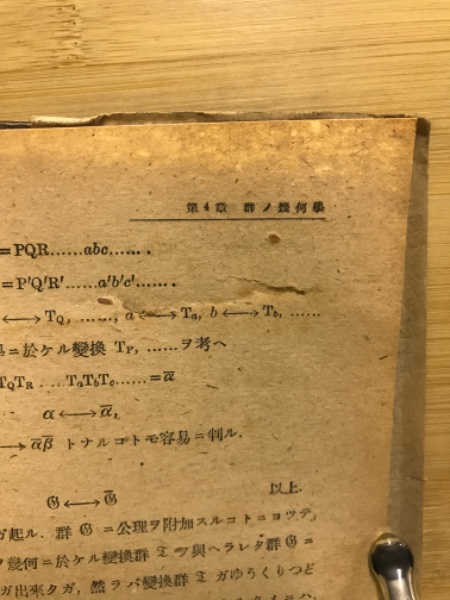 第4章 群ノ幾何學
=PQR......abc.......
=P'Q'R'......a'b'c'.......
⟷T_Q, ......, a⟷T_a, b⟷T_b, ......
ニ於ケル變換 T_P, ......ヲ考へ
T_QT_R....T_aT_bT_c......=ᾱ
α⟷ᾱ,
→ᾱβ̄ トナルコトモ容易ニ判ル.
𝔊⟷𝔊̄
以上.
ガ起ル. 群 𝔊 ニ公理ヲ附加スルコトニヨツテ,
幾何ニ於ケル變換群 𝔗 ヅ與ヘラレタ群 𝔊 =
ガ出來タガ, 然ラバ變換群 𝔗 ガゆうくりつど